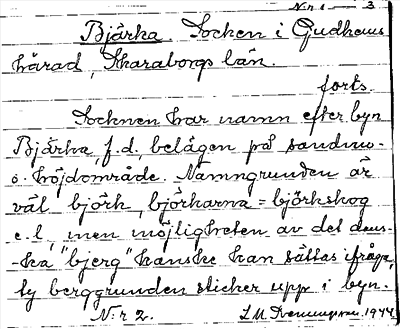 Nr 1 — 3.
Bjärka. Socken i Gudhems
härad, Skaraborgs län.
forts.
Socknen har namn efter byn
Bjärka f.d. belägen på sandmo-
o. höjdområde. Namngrunden är
väl björk, björkarna = björkskog
e.l., men möjligheten av det dans-
-ka "bjerg" kanske kan sättas ifråga,
ty berggrunden sticker upp i byn.
N:r 2.
1944